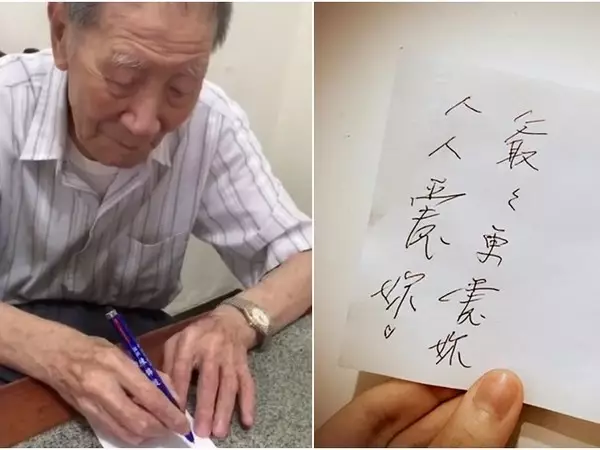 人人愛妳♡
爺々更愛妳